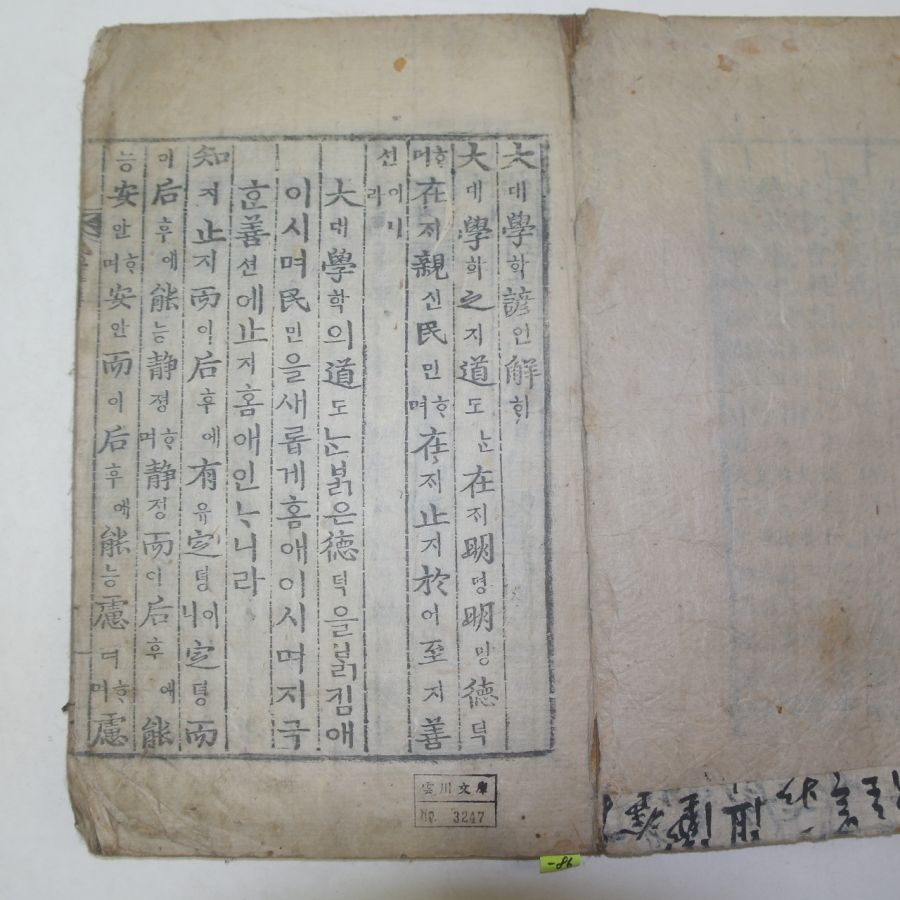 大대學학諺언解ᄒᆡ
大대學ᄒᆞᆨ之지道도ᄂᆞᆫ在ᄌᆡ明명明명德덕
ᄒᆞ며在ᄌᆡ親신民민ᄒᆞ며在ᄌᆡ止지於어至지善
션이니라
大대學학의道도ᄂᆞᆫ붉은德덕을붉킴애
이시며民민을새롭게홈애이시며지극
ᄒᆞᆫ善션에止지홈애인ᄂᆞ니라
知지止지而이后후에有유定뎡이니定뎡而
이后후에能능静졍ᄒᆞ며静정而이后후에能
능安안ᄒᆞ며安안而이后후에能능慮려ᄒᆞ며慮
雲川文庫
No. 3247
-86